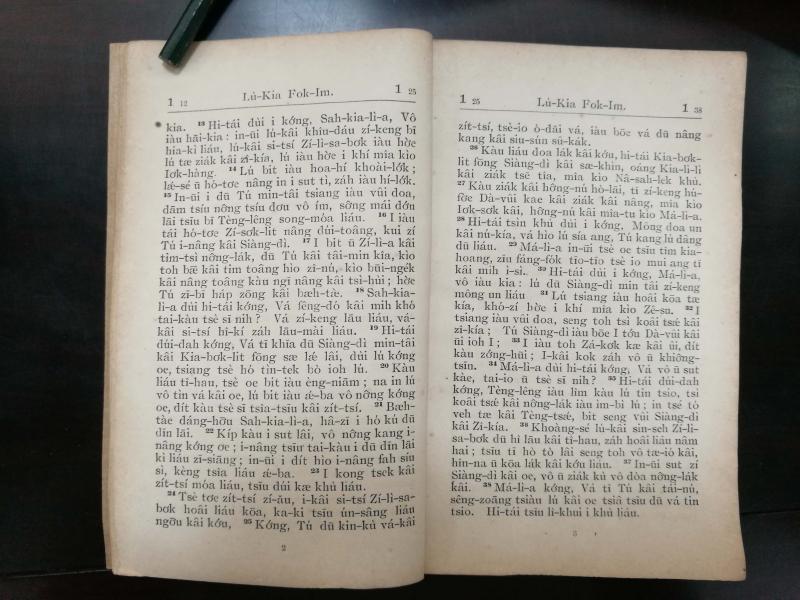 1 12 Lú-Kia Fok-Im. 1 25
kia. 13 Hi-tái dùi i kóng, Sah-kia-lì-a, Vô
iàu hāi-kia: in-ūi lú-kâi khiu-dáu zí-keng bī
hia-ki liáu, lú-kâi si-tsí Zí-lì-sa-bơk iàu hờe
lú tæ ziák kâi zî-kía, lú iàu hờe i khí mía kìo
Iơk-hàng. 14 Lú bit iàu hoa-hí khoài-lỏk;
lǽ-sé ū hò-tơe nâng in i sut tì, záh iàu hí-lỏk.
15 In-ūi i dū Tú mín-tâi tsiang iàu vûi doa,
dām tsíu nỡng tsíu dơu vô ím, sờng mái dớn
lâi tsīu bī Tèng-lêng song-móa liáu. 16 I iàu
tái hó-tơe Zí-sơk-lit nâng dúi-toâng, kui zí
Tú i-nâng kâi Siàng-dì. 17 I bit ū Zí-lì-a kâi
tìm-tsì nỡng-lák, dū Tú kâi tâi-min kía, kìo
toh bǣ kâi tim toâng hìo zi-nú, kìo būi-ngék
kâi nâng toâng kàu ngī nâng kâi tsì-hūi; hờe
Tú zī-bī háp zōng kâi bæh-tæ̀. 18 Sah-kia-
lì-a dùi hi-tái kóng, Vá fēng-dó kâi mih khó
tai-kàu tsè sī nih? Vá zí-keng lāu liáu, vá-
kâi si-tsí hī-kí záh lāu-mài liáu. 19 Hi-tái
dúi-dah kóng, Vá tī khīa dū Siàng-dì min-tâi
kâi Kia-bơk-lit fōng sæ lǽ lâi, dùi lú kóng
oe, tsiang tsè hó tìn-tek bò ioh lú. 20 Kàu
liáu tì-hau, tsè oe bit iàu èng-niām; na in lú
vô tin vá kâi oe, lú bit iàu ǽ-ba vô nỡng kóng
oe, dít kàu tsè sī tsia-tsīu kâi zít-tsí. 21 Bæh-
tàe dáng-hōu Sah-kia-lì-a, hâ-zī i hó kú dū
dīn lāi. 22 Kíp kàu i sut lâi, vô nỡng kang i-
nâng kóng ơe; i-nâng tsīu tai-kàu i dū dīn lāi
kì liáu zī-siāng; in-ūi i dít hìo i-nâng fah síu
sì, kèng tsia liáu ǽ-ba. 23 I kong tsek kâi
zít-tsí móa liáu, tsīu dúi kæ khù liáu.
24 Tsè tơe zít-tsí zí-āu, i-kâi si-tsí Zí-lì-sa-
bơk hoâi liáu kōa, ka-ki tsīu ún-sâng liáu
ngōu kâi kớu, 25 Kóng, Tú dū kin-kù vá-kâi
2
1 25 Lú-Kia Fok-Im. 1 38
zít-tsí, tsè-ìo ò-dāi vá, iàu bōe vá dū nâng
kang kâi siu-sún sú-kák.
26 Kàu liáu doa lák kâi kớu, hi-tái Kia-bơk-
lit fōng Siàng-dì kâi sæ-khìn, oáng Kia-lì-lì
kâi ziák tsē tīa, mía kìo Nâ-sah-lek khù.
27 Kàu ziák kâi hỡng-nú hò-lâi, tī zí-keng hú-
fớe Dà-vûi kae kâi ziák kâi nâng, mía kìo
Iơk-sớk kâi, hỡng-nú kâi mía-tu kìo Má-lì-a.
28 Hi-tái tsìn khù dùi i kóng, Mōng doa un
kâi nú-kía, vá hìo lú sía ang, Tú kang lú dâng
dū liáu. 29 Má-lì-a in-ūi tsè oe tsīu tim kia-
hoang, zīu fáng-fók tīo-tīo tsè io mui ang tī
kâi mih i-si. 30 Hi-tái dùi i kóng, Má-lì-a,
vô iàu kia: lú dū Siàng-dì min tâi zí-keng
mông un liáu 31 Lú tsiang iàu hoâi kōa tæ
kía, khó-zí hờe i khí mía kìo Zé-su. 32 I
tsiang iàu vûi doa, seng toh tsì koâi tsǽ kâi
zi-kía; Tú Siàng-dì iàu bōe I tớu Dà-vûi kâi
ūi ioh I; 33 I iàu toh Zá-kớk kæ kâi ūi, dít
kàu zóng-hūi; I-kâi kok záh vô ū khiỡng-
tsìn. 34 Má-lì-a dùi hi-tái kóng, Vá vô ū sut
kàe, tai-ìo ū tsè sī nih? 35 Hi-tái dúi-dah
kóng, Tèng-lêng iàu lim kàu lú tin tsio, tsì
koâi tsǽ kâi nỡng-lák iàu im-bi lú; in tsé tó
veh tæ kâi Tèng-tsǽ, bit seng vûi Siàng-dì
kâi Zi-kía. 36 Khoàng-sé lú-kâi sin-seh Zí-lì-
sa-bơk dū hi lāu kâi tì-hau, záh hoâi liáu nâm
hai; tsīu tī hò tò lâi seng toh vô tæ-ió kâi,
hín-na ū kōa lák kâi kớu liáu. 37 In-ūi sut zí
Siàng-dì kâi oe, vô ū ziák kù vô dòa nỡng-lák
kâi. 38 Má-lì-a kóng, Vá tī Tú kâi tái-nú,
sêng-zoāng tsiàu lú kâi oe tsiâ tsīu dū vá tin
tsio. Hi-tái tsīu lì-khui i khù liáu.
3